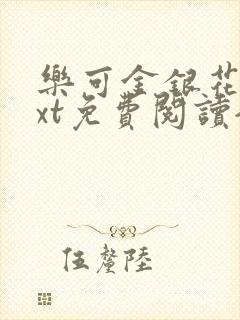 樂可金銀花
xt免費閱讀
伍釐陸